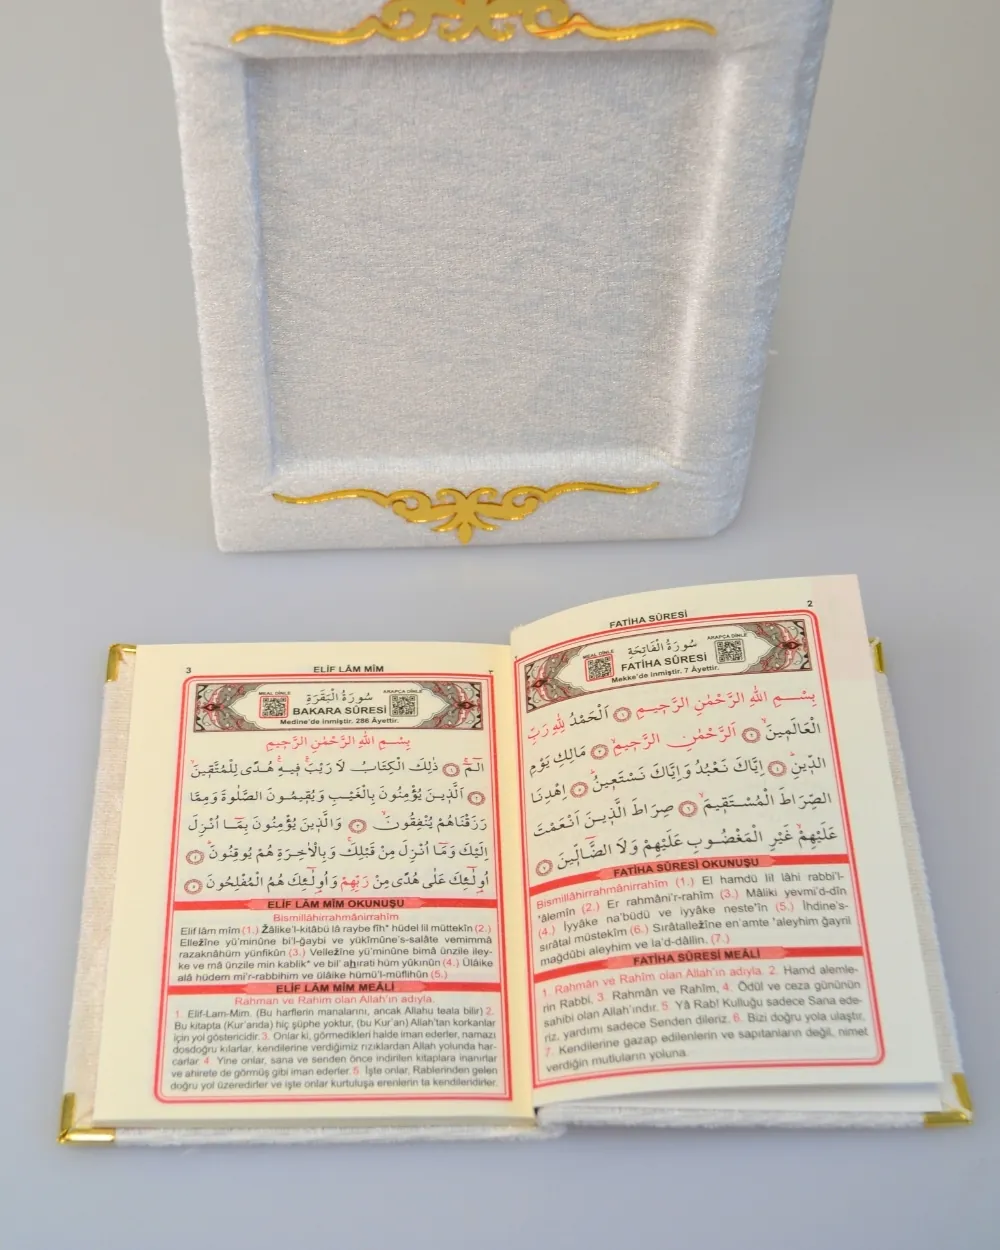 2
FATİHA SÛRESİ
MEAL DİNLE
سُورَةُ الْفَاتِحَةِ
ARAPÇA DİNLE
FATİHA SÛRESİ
Mekke'de inmiştir. 7 Âyettir.
بِسْمِ اللّٰهِ الرَّحْمٰنِ الرَّحِيمِ ١ اَلْحَمْدُ لِلّٰهِ رَبِّ
الْعَالَمِينَ ٢ اَلرَّحْمٰنِ الرَّحِيمِ ٣ مَالِكِ يَوْمِ
الدِّينِ ٤ اِيَّاكَ نَعْبُدُ وَاِيَّاكَ نَسْتَعِينُ ٥ اِهْدِنَا
الصِّرَاطَ الْمُسْتَقِيمَ ٦ صِرَاطَ الَّذِينَ اَنْعَمْتَ
عَلَيْهِمْ غَيْرِ الْمَغْضُوبِ عَلَيْهِمْ وَلَا الضَّالِّينَ ٧
FATİHA SÛRESİ OKUNUŞU
Bismillâhirrahmânirrahîm (1.) El hamdü lil lâhi rabbi'l-
'âlemîn (2.) Er rahmâni'r-rahîm (3.) Mâliki yevmi'd-dîn
(4.) İyyâke na'büdü ve iyyâke neste'în (5.) İhdine's-
sırâtal müstekîm (6.) Sırâtallezîne en'amte 'aleyhim ğayril
mağdûbi aleyhim ve la'd-dâllîn. (7.)
FATİHA SÛRESİ MEÂLİ
1. Rahmân ve Rahîm olan Allah'ın adıyla. 2. Hamd alemle-
rin Rabbi, 3. Rahmân ve Rahîm, 4. Ödül ve ceza gününün
sahibi olan Allah'ındır. 5. Yâ Rab! Kulluğu sadece Sana ede-
riz, yardımı sadece Senden dileriz. 6. Bizi doğru yola ulaştır,
7. Kendilerine gazap edilenlerin ve sapıtanların değil, nimet
verdiğin mutluların yoluna.
3
ELİF LÂM MÎM
MEAL DİNLE
سُورَةُ الْبَقَرَةِ
ARAPÇA DİNLE
BAKARA SÛRESİ
Medine'de inmiştir. 286 Âyettir.
بِسْمِ اللّٰهِ الرَّحْمٰنِ الرَّحِيمِ
الٓمٓ ١ ذٰلِكَ الْكِتَابُ لَا رَيْبَ فِيهِ هُدًى لِلْمُتَّقِينَ
٢ اَلَّذِينَ يُؤْمِنُونَ بِالْغَيْبِ وَيُقِيمُونَ الصَّلٰوةَ وَمِمَّا
رَزَقْنَاهُمْ يُنْفِقُونَ ٣ وَالَّذِينَ يُؤْمِنُونَ بِمَٓا اُنْزِلَ
اِلَيْكَ وَمَٓا اُنْزِلَ مِنْ قَبْلِكَ وَبِالْاٰخِرَةِ هُمْ يُوقِنُونَ ٤
اُو۬لٰٓئِكَ عَلٰى هُدًى مِنْ رَبِّهِمْ وَاُو۬لٰٓئِكَ هُمُ الْمُفْلِحُونَ ٥
ELİF LÂM MÎM OKUNUŞU
Bismillâhirrahmânirrahîm
Elif lâm mîm (1.) Žâlike'l-kitâbü lâ raybe fîh* hüdel lil müttekîn (2.)
Elležîne yü'minûne bi'l-ğaybi ve yükîmûne's-salâte vemimmâ
razaknâhüm yünfikûn (3.) Velležîne yü'minûne bimâ ünzile iley-
ke ve mâ ünzile min kablik* ve bil' ahırati hüm yûkınûn (4.) Ülâike
alâ hüdem mi'r-rabbihim ve ülâike hümü'l-müflihûn (5.)
ELİF LÂM MÎM MEÂLİ
Rahman ve Rahim olan Allah'ın adıyla.
1. Elif-Lam-Mim. (Bu harflerin manalarını, ancak Allahu teala bilir) 2.
Bu kitapta (Kur'anda) hiç şüphe yoktur, (bu Kur'an) Allah'tan korkanlar
için yol göstericidir. 3. Onlar ki, görmedikleri halde iman ederler, namazı
dosdoğru kılarlar, kendilerine verdiğimiz rızıklardan Allah yolunda har-
carlar. 4. Yine onlar, sana ve senden önce indirilen kitaplara inanırlar
ve ahirete de görmüş gibi iman ederler. 5. İşte onlar, Rablerinden gelen
doğru yol üzeredirler ve işte onlar kurtuluşa erenlerin ta kendileridirler.